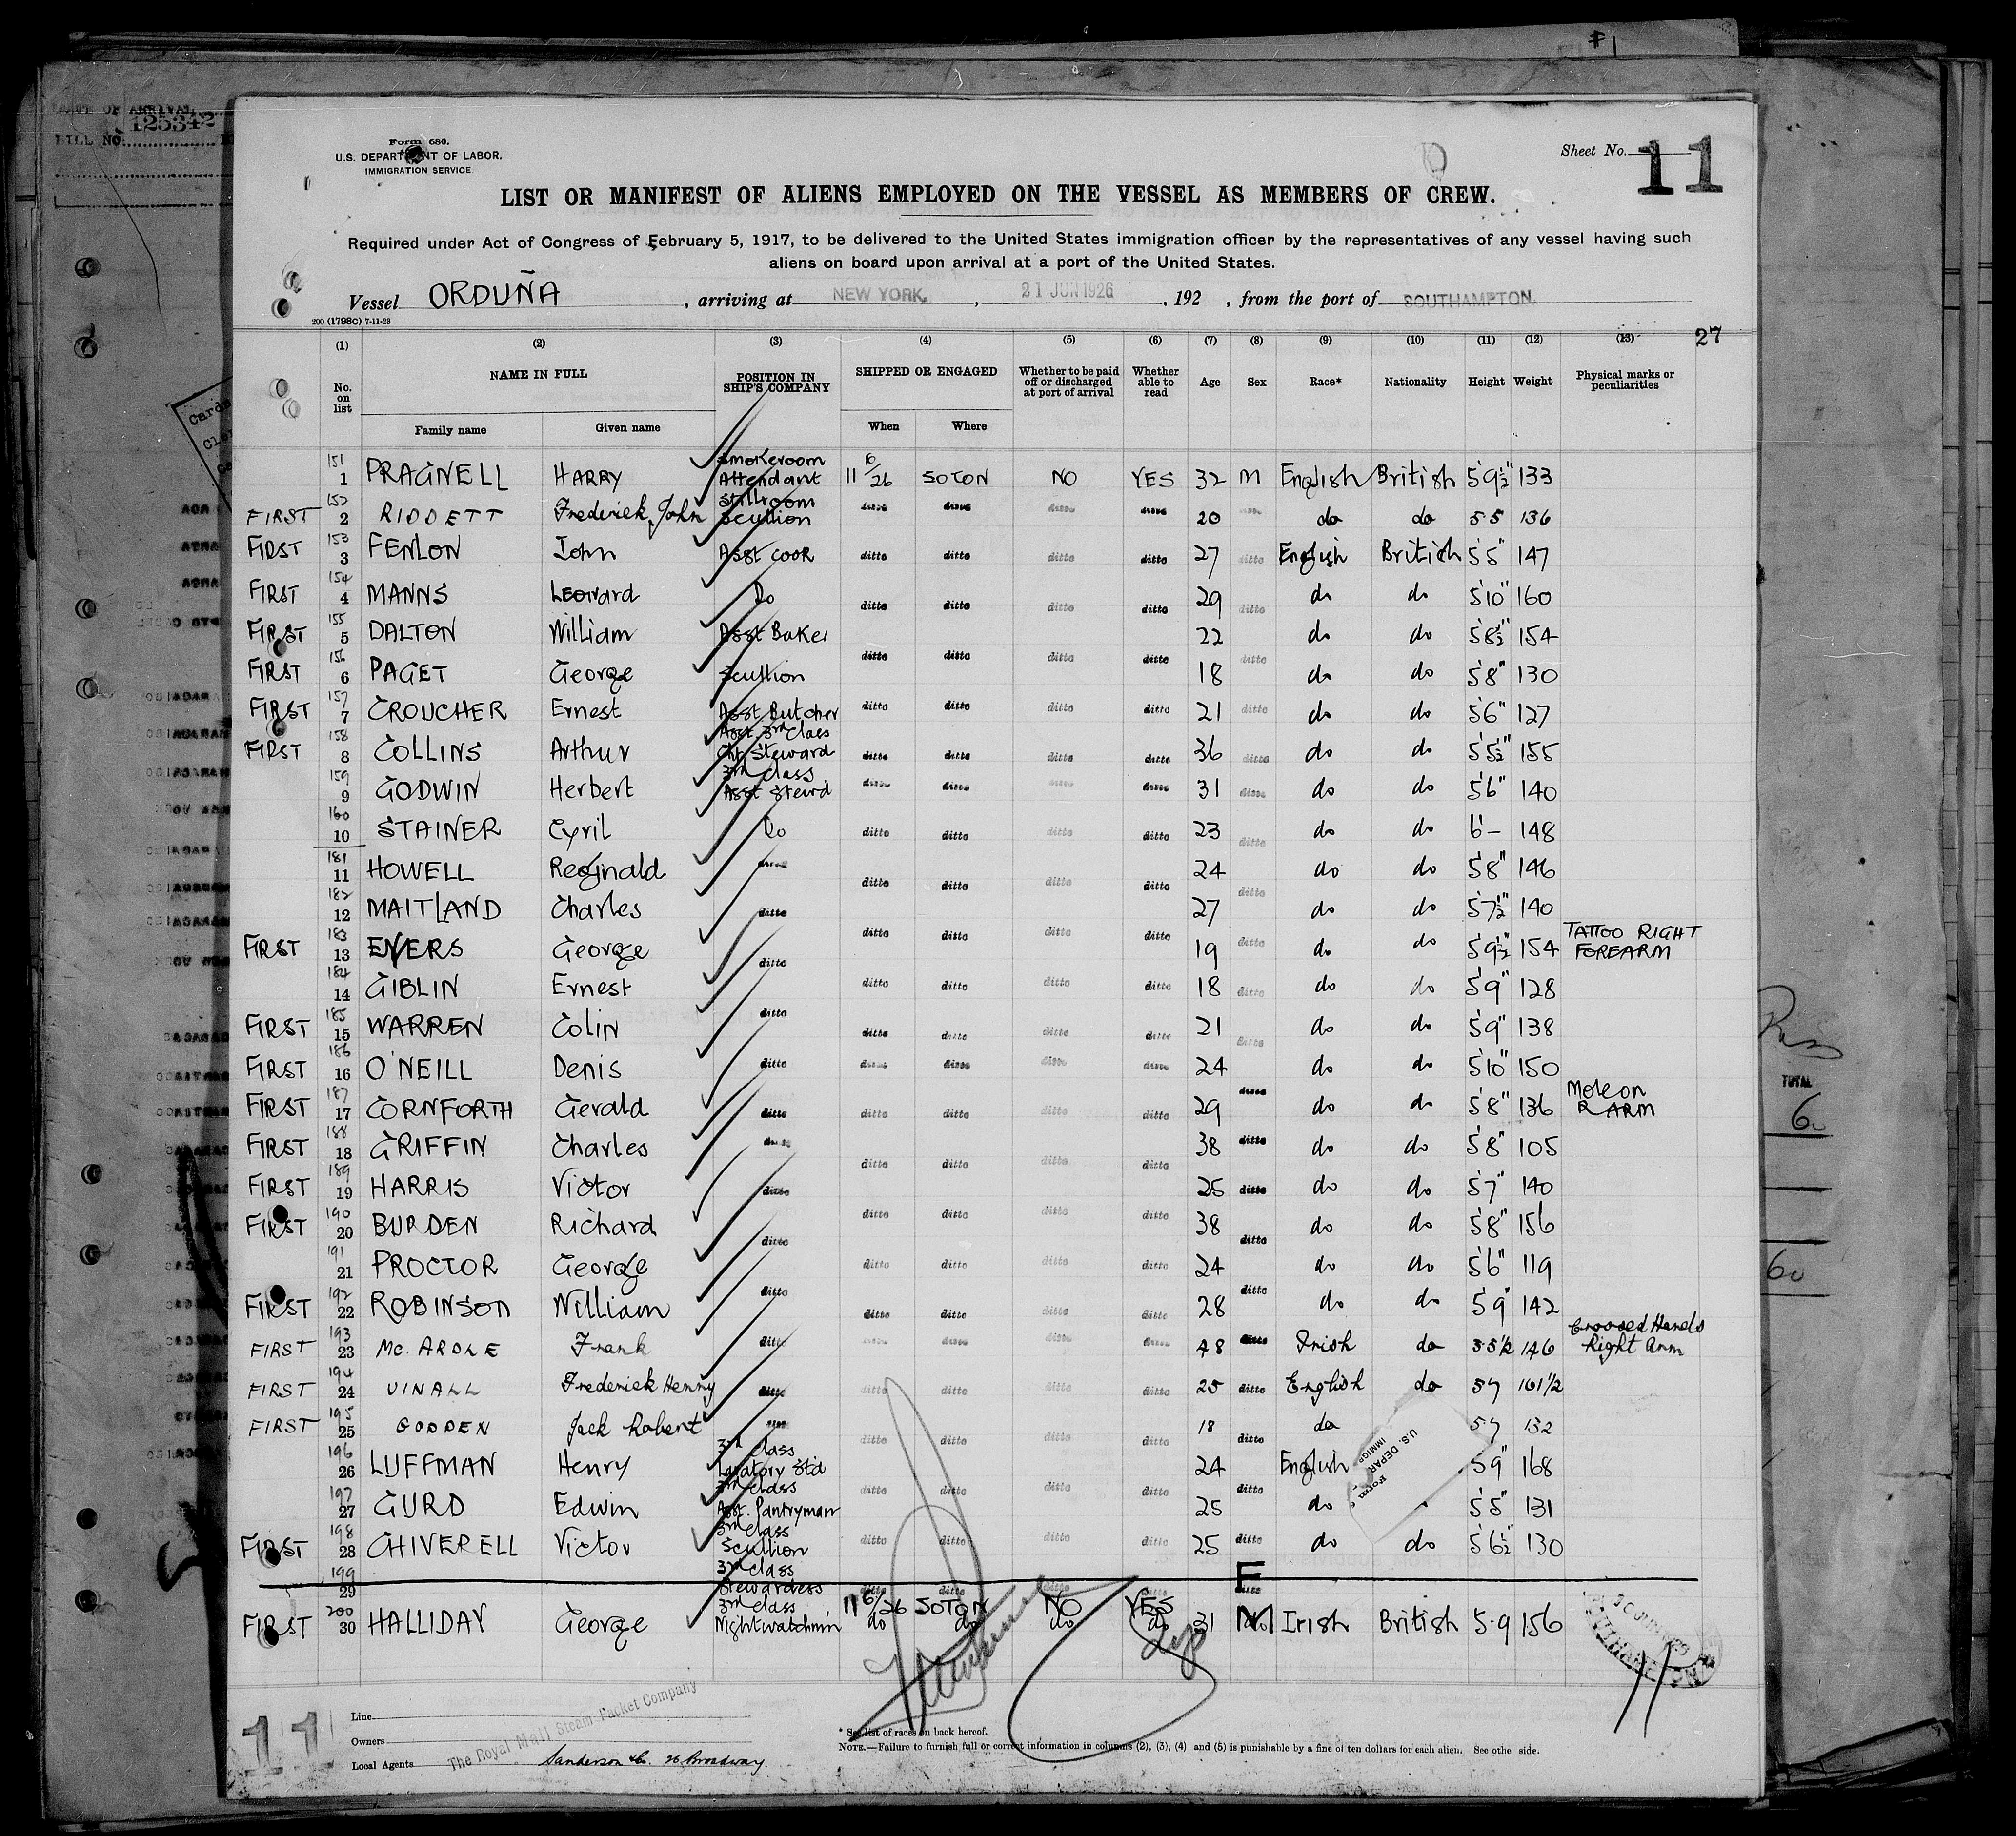 #1
DATE OF ARRIVAL
BILL NO. 125342
Form 680.
U.S. DEPARTMENT OF LABOR.
IMMIGRATION SERVICE
Sheet No. 11
LIST OR MANIFEST OF ALIENS EMPLOYED ON THE VESSEL AS MEMBERS OF CREW.
Required under Act of Congress of February 5, 1917, to be delivered to the United States immigration officer by the representatives of any vessel having such
aliens on board upon arrival at a port of the United States.
Vessel ORDUÑA, arriving at NEW YORK, 21 JUN 1926, 192 , from the port of SOUTHAMPTON.
200 (1798C) 7-11-23
27
(1) (2) (3) (4) (5) (6) (7) (8) (9) (10) (11) (12) (13)
No. on list NAME IN FULL POSITION IN SHIP'S COMPANY SHIPPED OR ENGAGED Whether to be paid off or discharged at port of arrival Whether able to read Age Sex Race* Nationality Height Weight Physical marks or peculiarities
Family name Given name When Where
151 1 PRAGNELL HARRY Smokeroom Attendant 11 6/26 SOTON NO YES 32 M English British 5'9½" 133
FIRST 152 2 RIDDETT Frederick John Stillroom Scullion ditto ditto ditto ditto 20 ditto do do 5.5 136
FIRST 153 3 FENLON John Asst Cook ditto ditto ditto ditto 27 ditto English British 5'5" 147
FIRST 154 4 MANNS Leonard Do ditto ditto ditto ditto 29 ditto do do 5'10" 160
FIRST 155 5 DALTON William Asst Baker 22 do do 5'8½" 154
FIRST 156 6 PAGET George Scullion ditto ditto ditto ditto 18 ditto do do 5'8" 130
FIRST 157 7 CROUCHER Ernest Asst Butcher ditto ditto ditto ditto 21 ditto do do 5'6" 127
FIRST 158 8 COLLINS Arthur Asst. 3rd Class Ch. Steward ditto ditto ditto ditto 36 ditto do do 5'5½" 155
159 9 GODWIN Herbert 3rd Class Asst Stewd ditto ditto ditto ditto 31 ditto do do 5'6" 140
160 10 STAINER Cyril Do ditto ditto ditto ditto 23 ditto do do 6'- 148
181 11 HOWELL Reginald ditto ditto ditto ditto ditto 24 ditto do do 5'8" 146
182 12 MAITLAND Charles ditto 27 do do 5'7½" 140
FIRST 183 13 EVERS George ditto ditto ditto ditto ditto 19 ditto do do 5'9½" 154 TATTOO RIGHT FOREARM
184 14 GIBLIN Ernest ditto ditto ditto ditto 18 ditto do do 5'9" 128
FIRST 185 15 WARREN Colin ditto ditto ditto ditto ditto 21 ditto do do 5'9" 138
FIRST 186 16 O'NEILL Denis ditto ditto ditto ditto ditto 24 do do 5'10" 150
FIRST 187 17 CORNFORTH Gerald ditto ditto ditto ditto ditto 29 ditto do do 5'8" 136 Mole on R ARM
FIRST 188 18 GRIFFIN Charles ditto ditto ditto ditto ditto 38 ditto do do 5'8" 105
FIRST 189 19 HARRIS Victor ditto 25 ditto do do 5'7" 140
FIRST 190 20 BURDEN Richard ditto ditto ditto ditto ditto 38 ditto do do 5'8" 156
191 21 PROCTOR George ditto ditto ditto ditto 24 do do 5'6" 119
FIRST 192 22 ROBINSON William ditto ditto ditto ditto ditto 28 ditto do do 5'9" 142
FIRST 193 23 Mc. ARDLE Frank ditto ditto ditto ditto ditto 48 ditto Irish do 5.5½ 146 Crossed Hands Right Arm
FIRST 194 24 VINALL Frederick Henry ditto ditto ditto ditto ditto 25 ditto English do 5 7 161½
FIRST 195 25 GODDEN Jack Robert ditto ditto ditto ditto ditto 18 ditto do 5 7 132
196 26 LUFFMAN Henry 3rd Class Lavatory Std 24 English 5'9" 168
197 27 GURD Edwin 3rd Class Asst. Pantryman ditto ditto ditto ditto 25 ditto do 5'5" 131
FIRST 198 28 CHIVERELL Victor 3rd Class Scullion ditto ditto ditto ditto 25 ditto do do 5'6½" 130
199 29 3rd Class Stewardess ditto ditto ditto ditto F
FIRST 200 30 HALLIDAY George 3rd Class Nightwatchmn 11 6/26 SOTON NO YES do do do do 31 M Irish British 5.9 156
U.S. DEPAR
IMMIGR
Form
TOTAL
60
60
11
Line
Owners The Royal Mail Steam Packet Company
Local Agents Sanderson & Co. 26 Broadway
* See list of races on back hereof.
NOTE.—Failure to furnish full or correct information in columns (2), (3), (4) and (5) is punishable by a fine of ten dollars for each alien. See othe side.
11